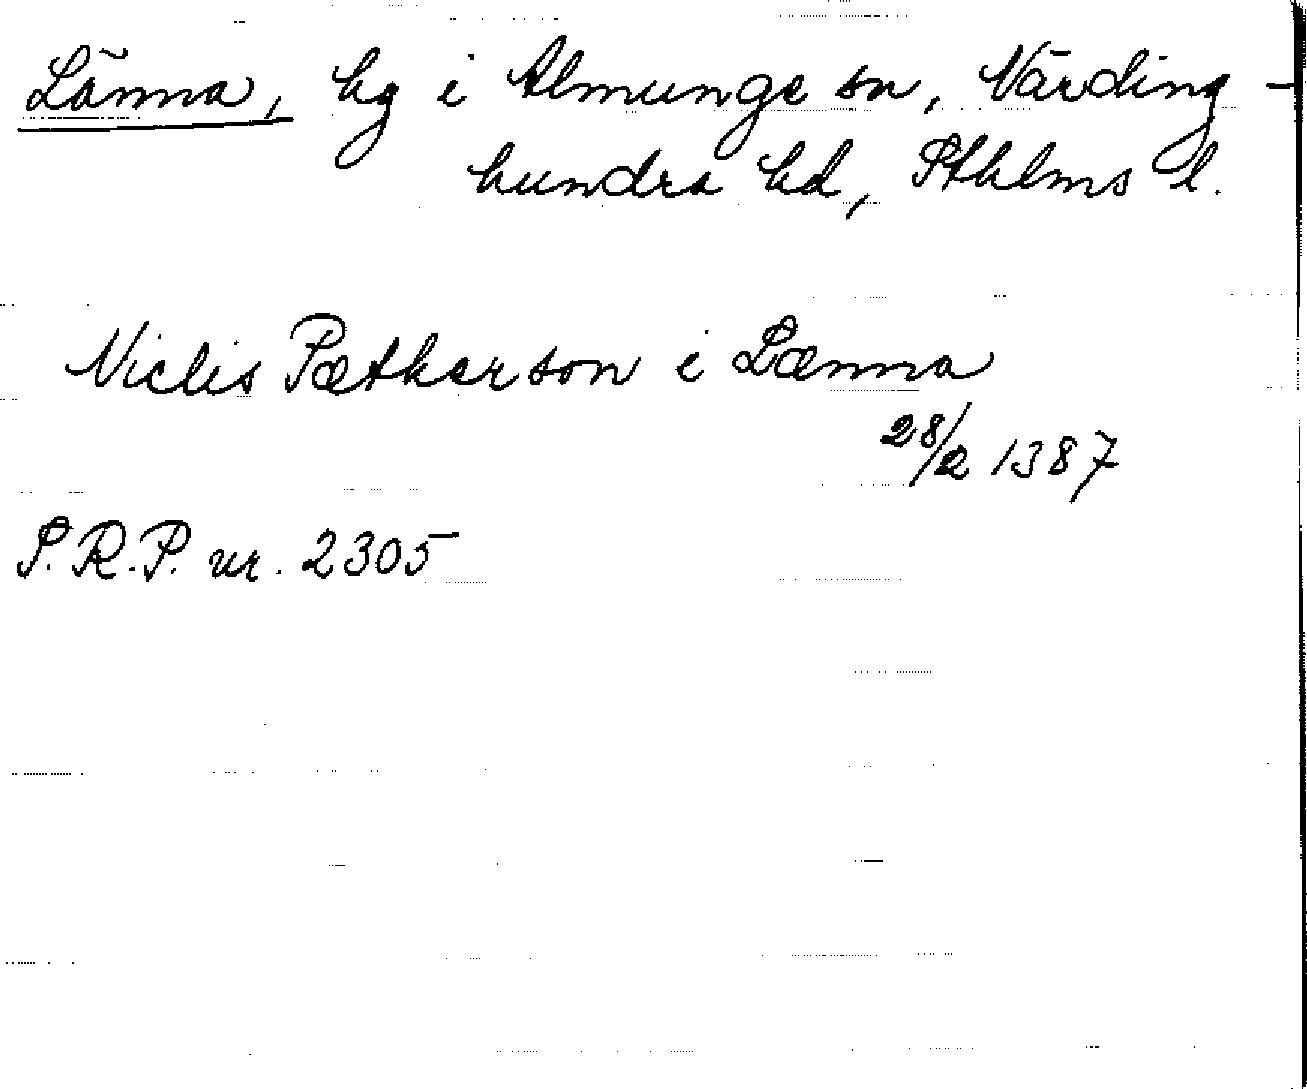 Länna, hg i Almunge sn, Närding-
hundra hd, Sthlms l.
Niclis Pætherson i Lænna
28/2 1387
S.R.P. nr. 2305